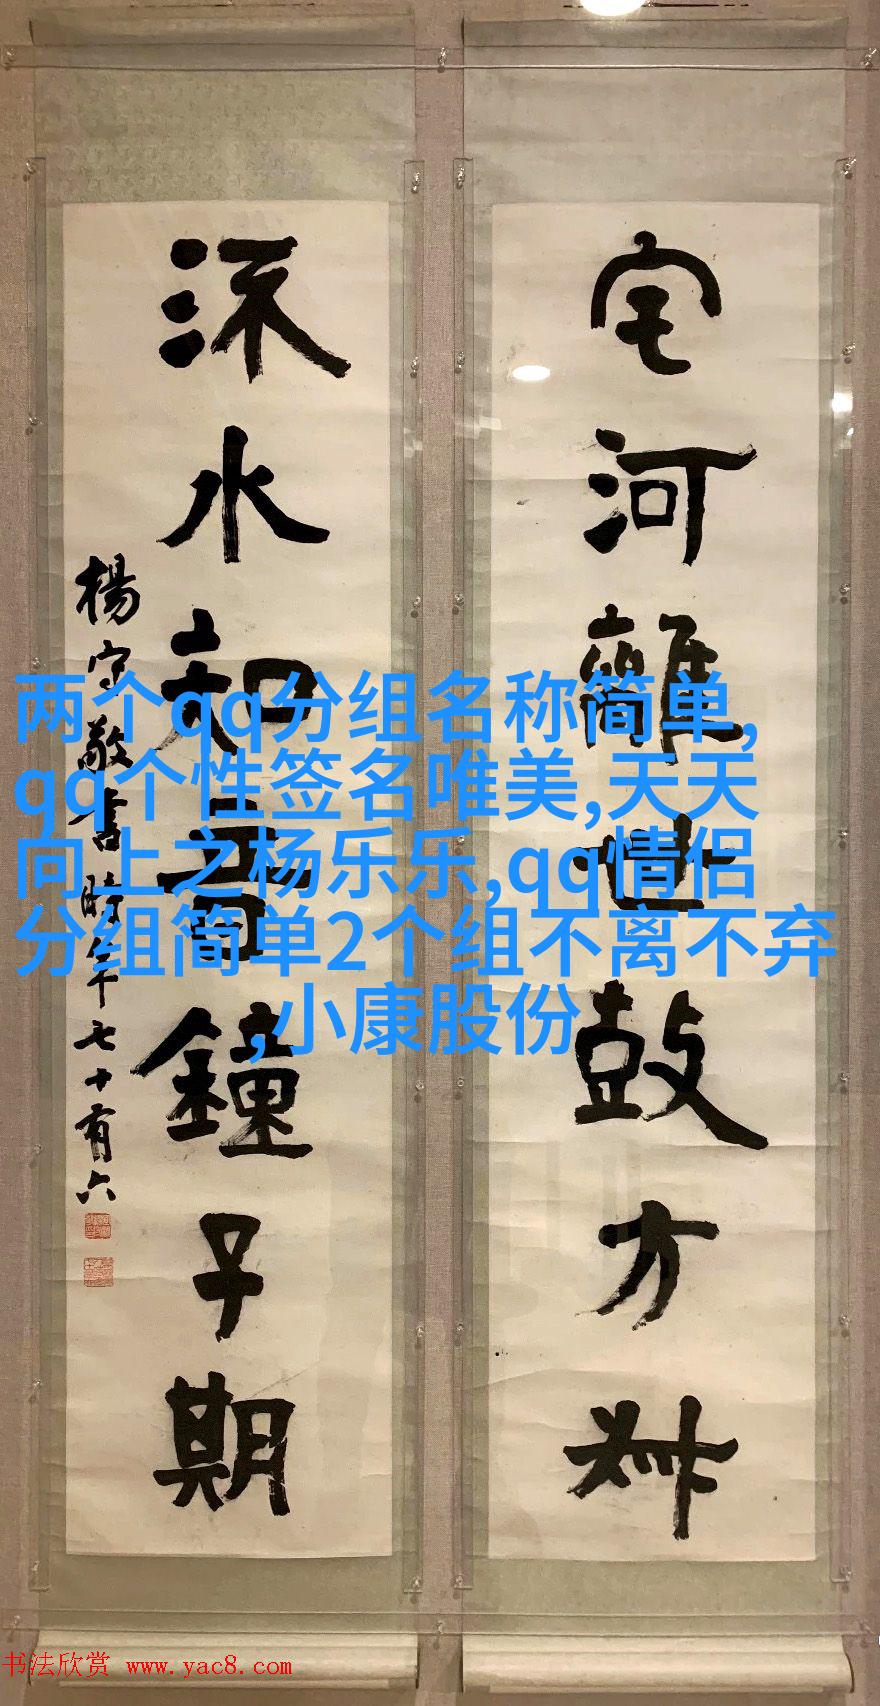 宅河離世鼓方叔
流水知音鐘子期
楊守敬書時年七十有六
两个qq分组名称简单,
qq个性签名唯美,天天
向上之杨乐乐,qq情侣
分组简单2个组不离不弃
,小康股份
书法欣赏 www.yac8.com